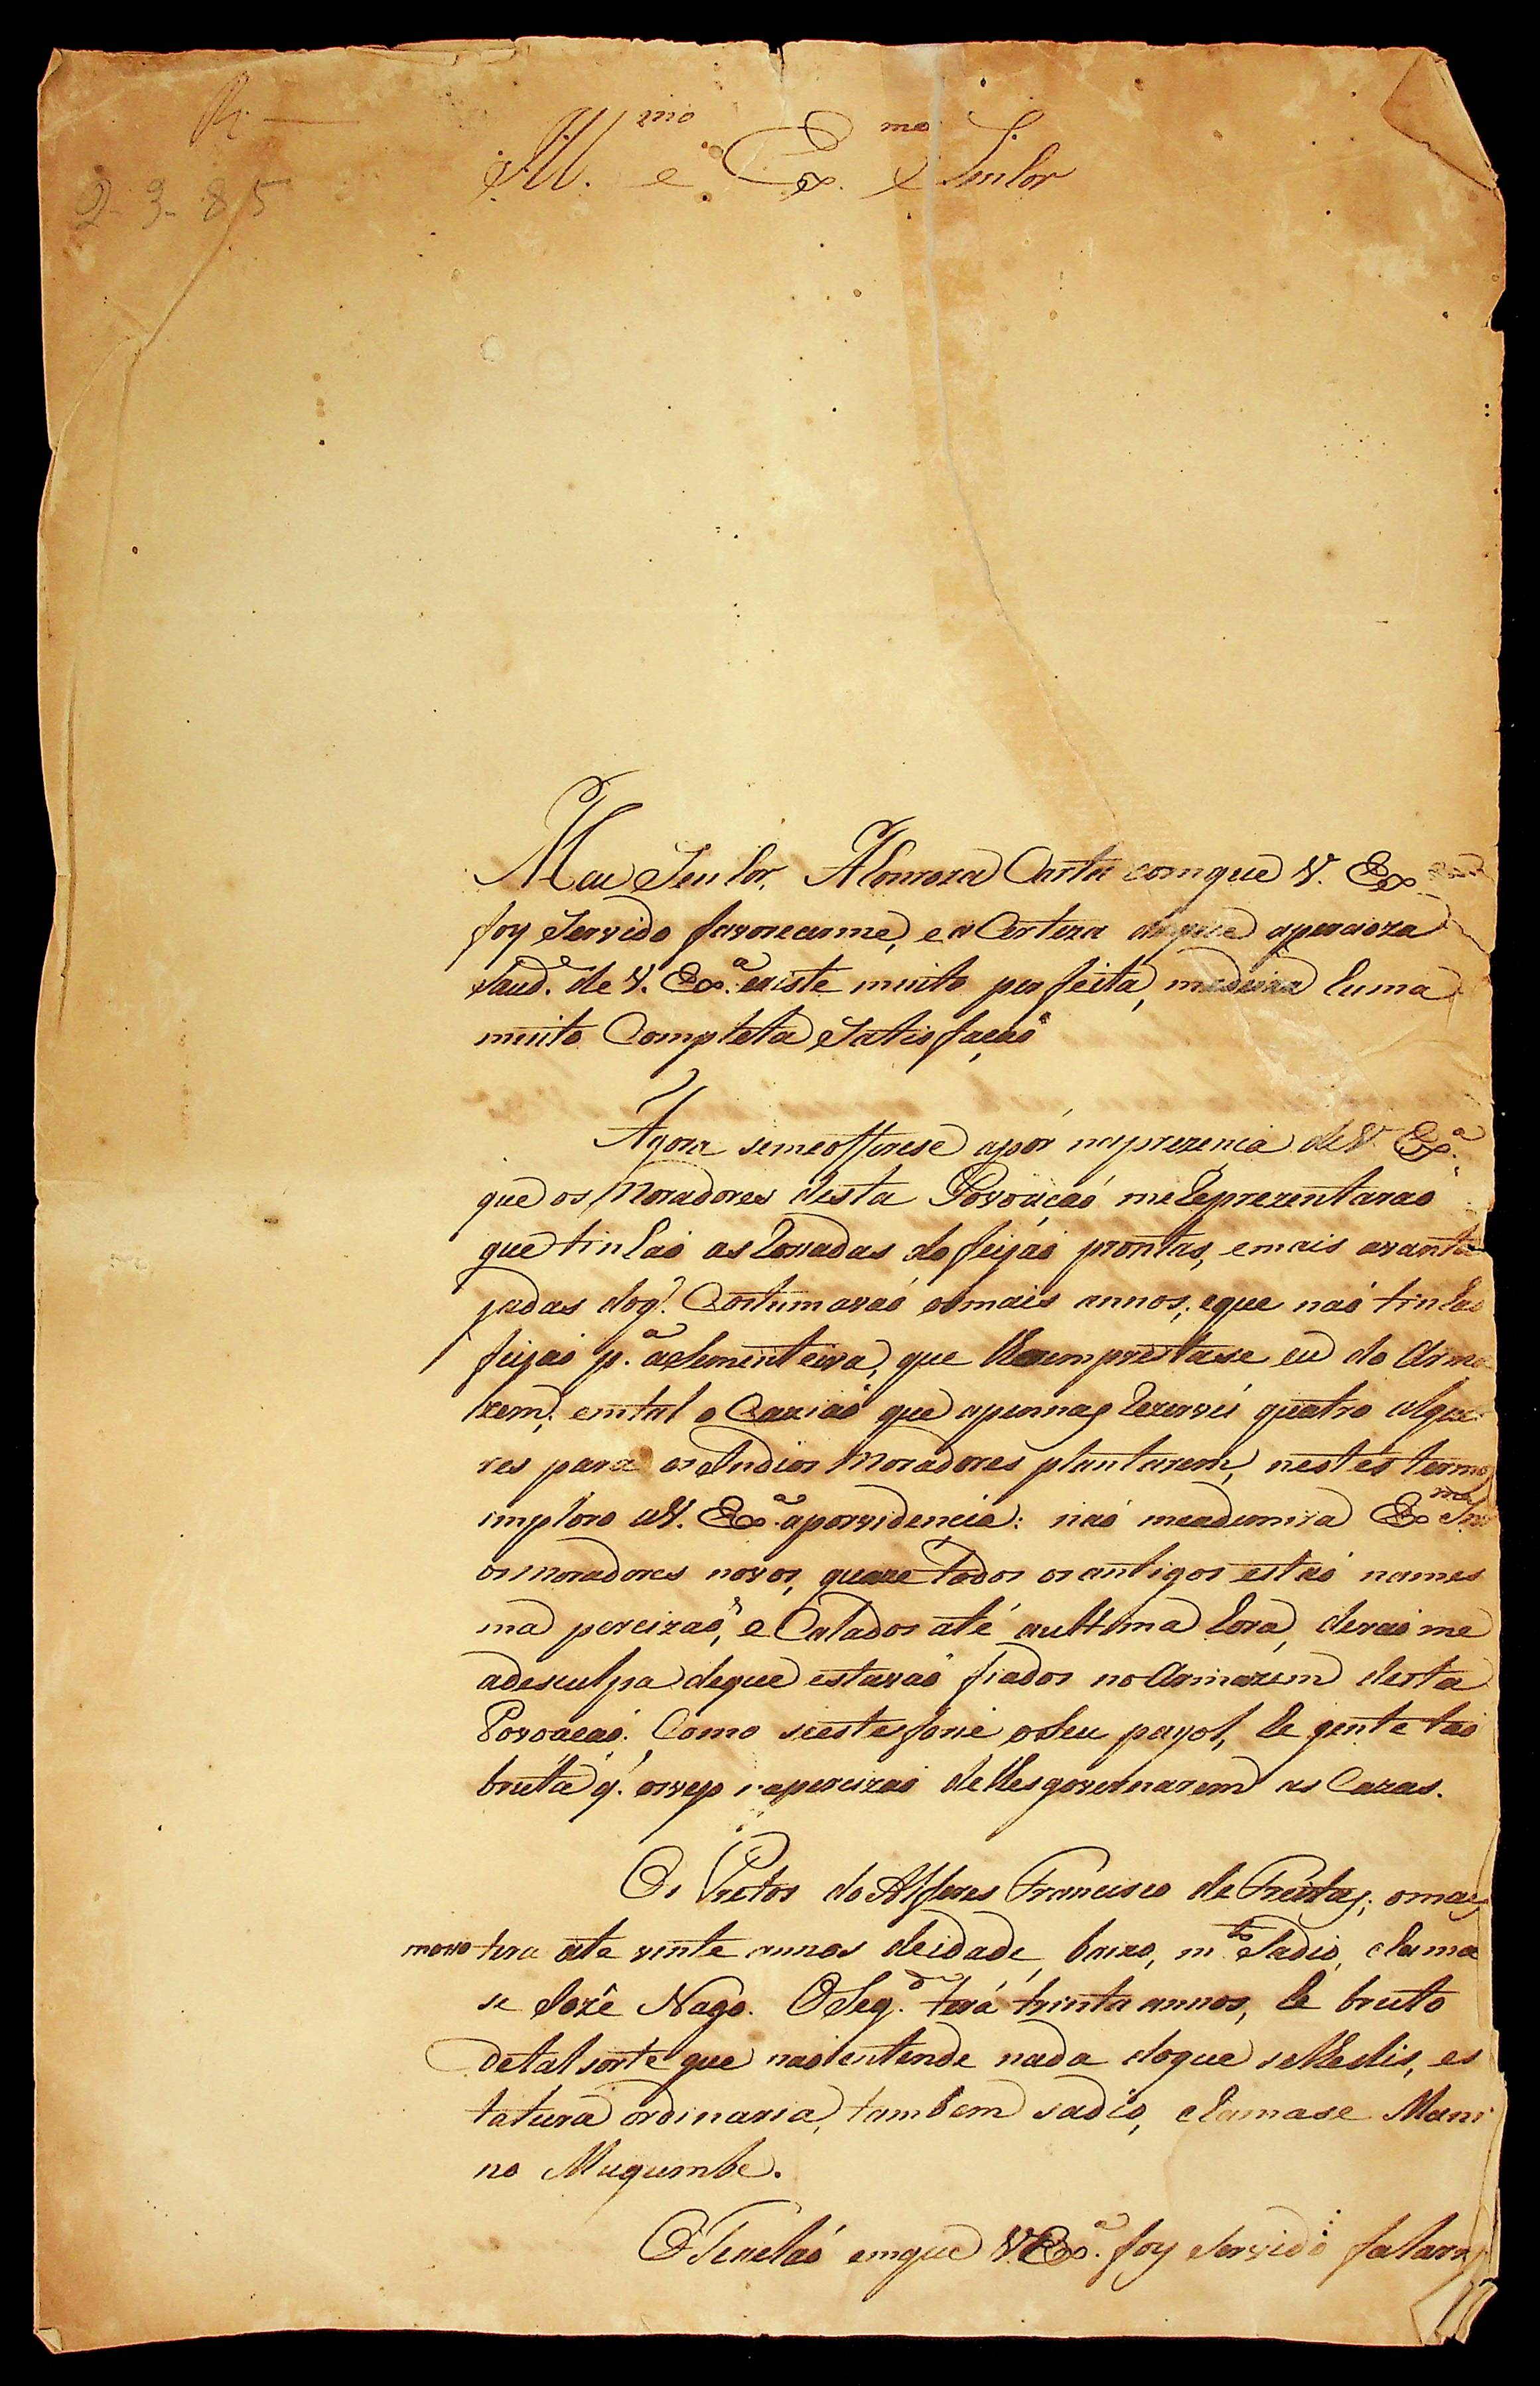 R.
2-3-85
Ill.mo e Ex.mo Senhor
Meu Senhor, A Honroza Carta comque V. Ex
foy Servido favorecerme, e a Certeza deque aperacioza
Saud.e de V. Ex.a existe muito perfeita, huma
muito Completa Satisfaçaõ
Agora semeofferese apór naprezencia deV. Ex.a
que os Moradores desta Povoaçaó meReprezentaraó
que tinhaó as Rossadas do feijaó prontas, emais avanta
jadas doq.' Costumavaó osmais annos, eque naó tinhaó
feijaó p.a aSementeira, que lheemprestase eu do Arma
zem, emtal oCaziaó que apennas Rezervei quatro alquei
res para osIndios Moradores plantarem, nestes termos
imploro aV. Ex.a aporvidencia: naó meademira Ex.mo Snr
os moradores novos, quaze todos osantigos estaó names
ma percizaõ, e Calados até aultima hora, deraóme
adesculpa deque estavaó fiados noArmazem desta
Povoaçaó. Como seeste fosse oSeu payol, he gente taó
bruta q.' apercizaó delhesgovernarem as Cazas.
Os Pretos doAlferes Francisco de Freitas; omais
mosso tera ate vinte annos deidade, baixo, m.to Sadio, chama
se Jozé Nago. OSeg.do terá trinta annos, he bruto
detalsorte que naóentende nada doque selhediz, es
tatura ordinaria, tambem sadio, chamase Mani
no Mugumbe.
O emque V.Ex.a foy Servido falar